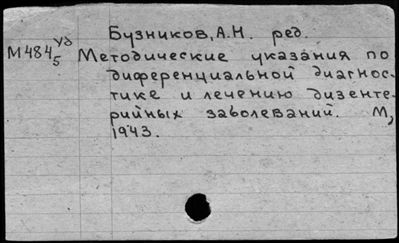 Бузников, А.Н. ред.
М484 уд
5
Методические указания по
диференциальной диагнос-
тике и лечению дизенте-
рийных заболеваний. М,
1943.